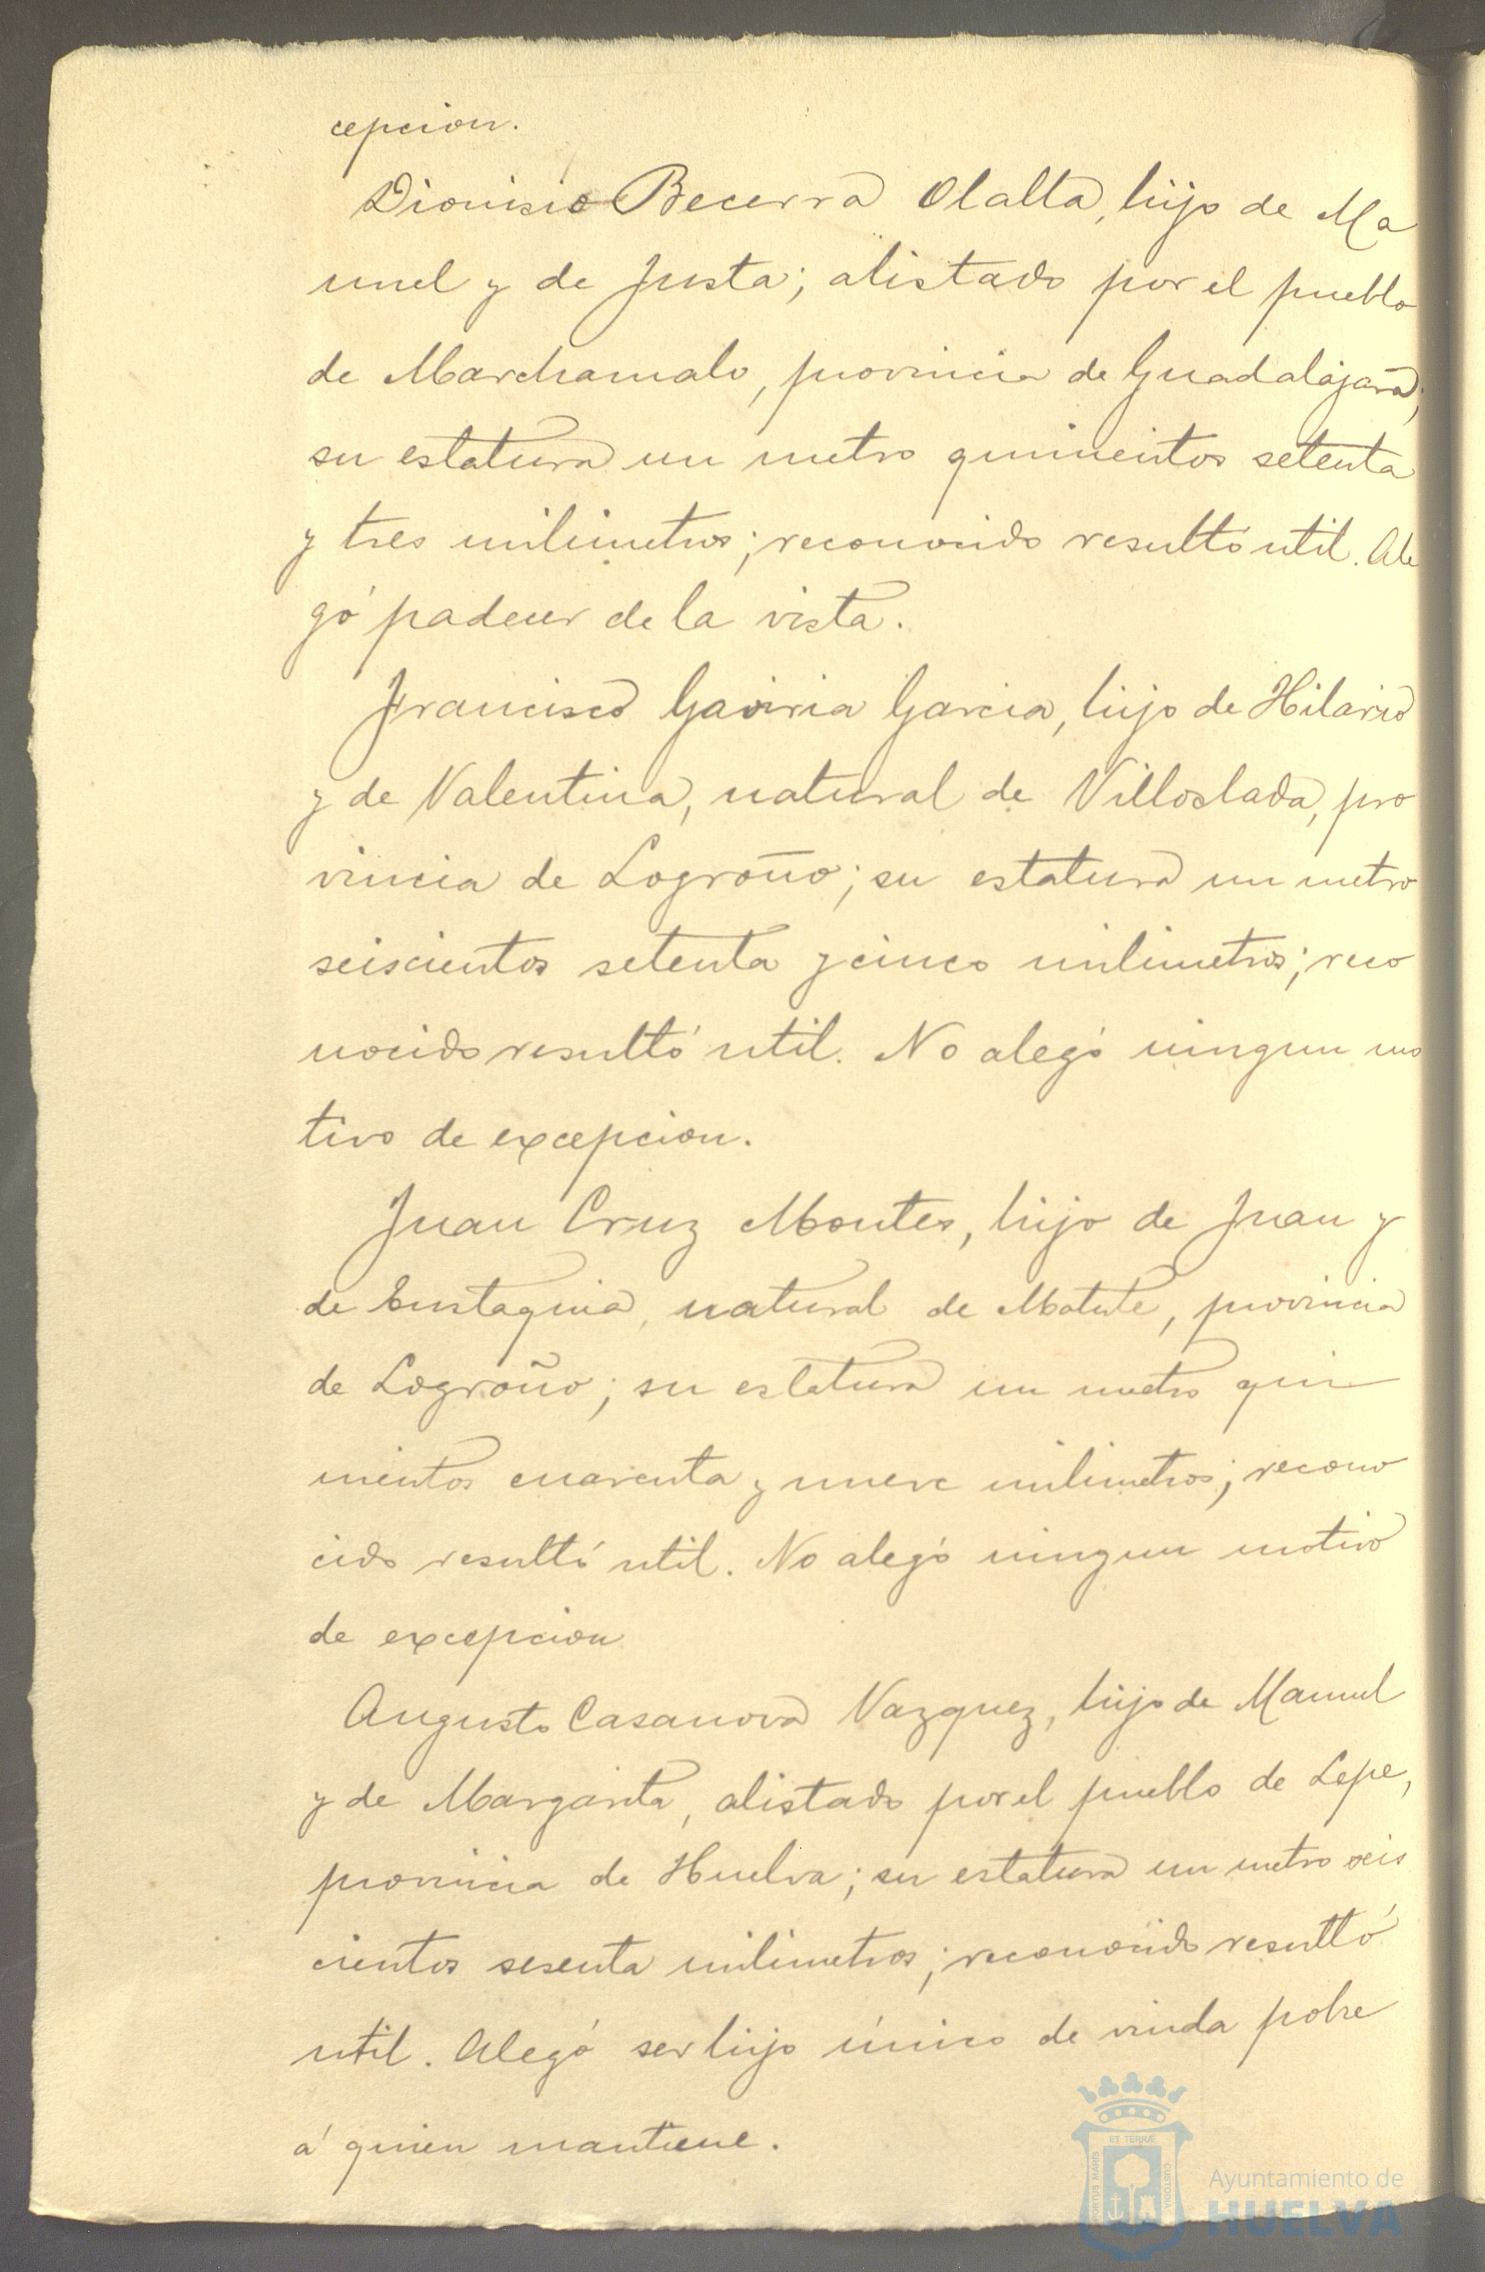 cepcion.
Dionisio Becerra Olalla, hijo de Ma
nuel y de Justa; alistado por el pueblo
de Marchamalo, provincia de Guadalajara;
su estatura un metro quinientos setenta
y tres milimetros; reconocido resultó util. Ale
gó padecer de la vista.
Francisco Gaviria Garcia, hijo de Hilario
y de Valentina, natural de Villoslada, pro
vincia de Logroño; su estatura un metro
seiscientos setenta y cinco milimetros; reco
nocido resultó util. No alegó ningun mo
tivo de excepcion.
Juan Cruz Montes, hijo de Juan y
de Eustaquia, natural de Matute, provincia
de Logroño; su estatura un metro qui
nientos cuarenta y nueve milimetros; recono
cido resultó util. No alegó ningun motivo
de excepcion
Augusto Casanova Vazquez, hijo de Manuel
y de Margarita, alistado por el pueblo de Lepe,
provincia de Huelva; su estatura un metro seis
cientos sesenta milimetros; reconocido resultó
util. Alegó ser hijo único de viuda pobre
á quien mantiene.
ET TERRÆ
PORTUS MARIS
CUSTODIA
Ayuntamiento de
HUELVA